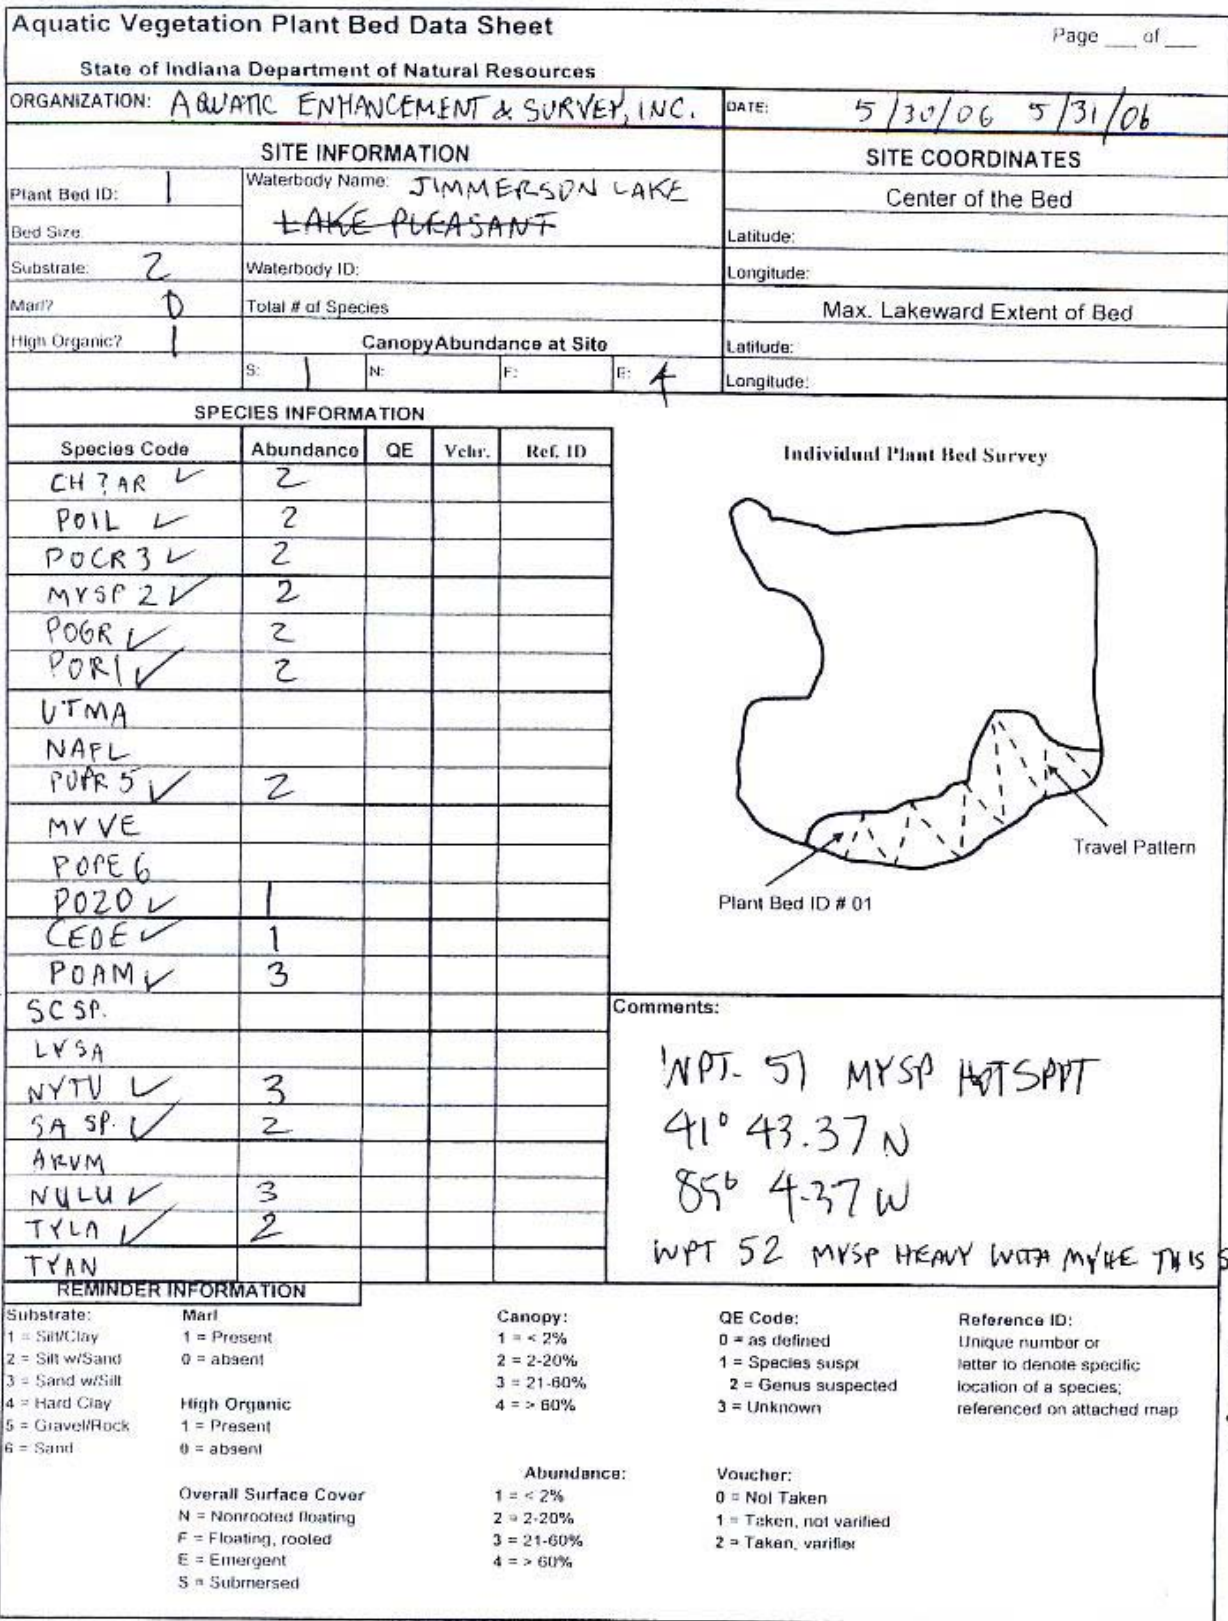 Aquatic Vegetation Plant Bed Data Sheet
Page ___ of ___
State of Indiana Department of Natural Resources
ORGANIZATION: AQUATIC ENHANCEMENT & SURVEY, INC.
DATE: 5/30/06 5/31/06
SITE INFORMATION
SITE COORDINATES
Plant Bed ID: 1
Waterbody Name: JIMMERSON LAKE
LAKE PLEASANT
Center of the Bed
Bed Size:
Latitude:
Substrate: 2
Waterbody ID:
Longitude:
Marl? 0
Total # of Species
Max. Lakeward Extent of Bed
High Organic? 1
Canopy Abundance at Site
Latitude:
S: 1 N: F: E: 4
Longitude:
SPECIES INFORMATION
Species Code Abundance QE Vchr. Ref. ID
CH?AR ✓ 2
POIL ✓ 2
POCR3 ✓ 2
MYSP2 ✓ 2
POGR ✓ 2
PORI ✓ 2
UTMA
NAFL
POPR5 ✓ 2
MYVE
POPE6
POZO ✓ 1
CEDE ✓ 1
POAM ✓ 3
SC SP.
LYSA
NYTU ✓ 3
SA SP. ✓ 2
ARUM
NULU ✓ 3
TYLA ✓ 2
TYAN
Individual Plant Bed Survey
Travel Pattern
Plant Bed ID # 01
Comments:
WPT. 51 MYSP HOTSPOT
41° 43.37 N
85° 4.37 W
WPT 52 MYSP HEAVY WITH MYHE THIS S
REMINDER INFORMATION
Substrate:
1 = Silt/Clay
2 = Silt w/Sand
3 = Sand w/Silt
4 = Hard Clay
5 = Gravel/Rock
6 = Sand
Marl
1 = Present
0 = absent
High Organic
1 = Present
0 = absent
Overall Surface Cover
N = Nonrooted floating
F = Floating, rooted
E = Emergent
S = Submersed
Canopy:
1 = < 2%
2 = 2-20%
3 = 21-60%
4 = > 60%
Abundance:
1 = < 2%
2 = 2-20%
3 = 21-60%
4 = > 60%
QE Code:
0 = as defined
1 = Species suspe
2 = Genus suspected
3 = Unknown
Voucher:
0 = Not Taken
1 = Taken, not varified
2 = Taken, varified
Reference ID:
Unique number or
letter to denote specific
location of a species;
referenced on attached map